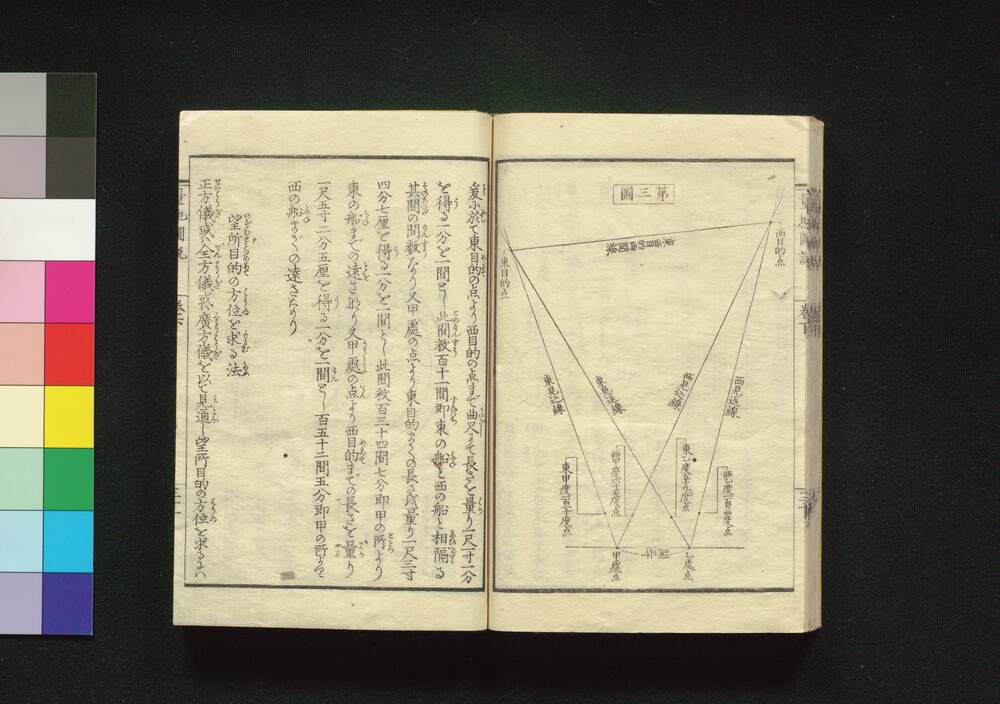 第三圖
西目的点
東目的点
東西目的両間線
西見込線
西見込線
東見込線
東見込線
西乙度一百四度点
東乙度五十九度点
西甲度六十五度点
東甲度一百二十度点
乙處点
甲處点
爰に於て東目的の点より西目的の点まで曲尺にて長さを量り一尺一寸一分
を得る一分を一間とし此間数百十一間即東の船と西の船と相隔る
其間の間数なり又甲處の点より東目的までの長さを量り一尺三寸
四分七厘を得る一分を一間とし此間数百三十四間七分即甲の所より
東の船までの遠さなり又甲處の点より西目的までの長さを量り
一尺五寸二分五厘を得る一分を一間とし百五十二間五分即甲の所より
西の船までの遠さなり
望所目的の方位を求る法
正方儀或は全方儀或は廣方儀を以て見通し望所目的の方位を求るには
量地圖説
巻下